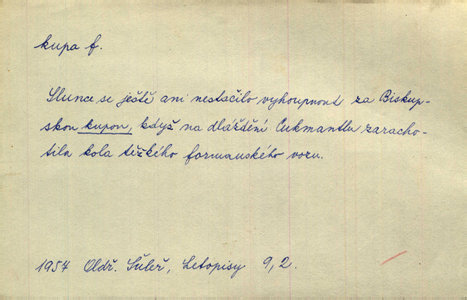 kupa f.
Slunce se ještě ani nestačilo vyhoupnout za Biskup-
skou kupou, když na dláždění Cukmantlu zaracho-
tila kola těžkého formanského vozu.
1957 Oldř. Šuleř, Letopisy 9,2.